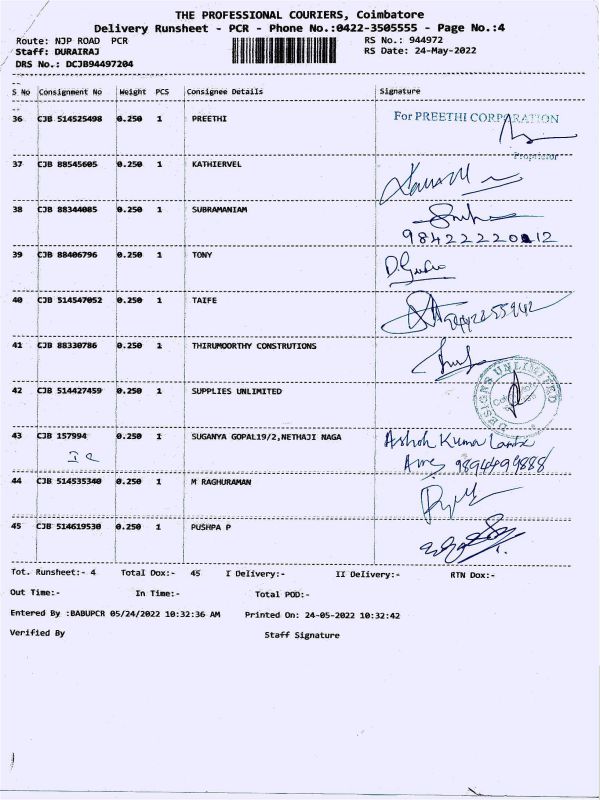 THE PROFESSIONAL COURIERS, Coimbatore
Delivery Runsheet - PCR - Phone No.:0422-3505555 - Page No.:4
Route: NJP ROAD PCR RS No.: 944972
Staff: DURAIRAJ RS Date: 24-May-2022
DRS No.: DCJB94497204
S No Consignment No Weight PCS Consignee Details Signature
36 CJB 514525498 0.250 1 PREETHI For PREETHI CORPORATION
Proprietor
37 CJB 88545605 0.250 1 KATHIERVEL
38 CJB 88344085 0.250 1 SUBRAMANIAM
39 CJB 88406796 0.250 1 TONY
40 CJB 514547052 0.250 1 TAIFE 9442255942
41 CJB 88330786 0.250 1 THIRUMOORTHY CONSTRUTIONS
42 CJB 514427459 0.250 1 SUPPLIES UNLIMITED DESIGNS UNLIMITED
43 CJB 157994 0.250 1 SUGANYA GOPAL19/2,NETHAJI NAGA Ashok Kumar
9894499888
44 CJB 514535340 0.250 1 M RAGHURAMAN
45 CJB 514619530 0.250 1 PUSHPA P
Tot. Runsheet:- 4 Total Dox:- 45 I Delivery:- II Delivery:- RTN Dox:-
Out Time:- In Time:- Total POD:-
Entered By :BABUPCR 05/24/2022 10:32:36 AM Printed On: 24-05-2022 10:32:42
Verified By Staff Signature